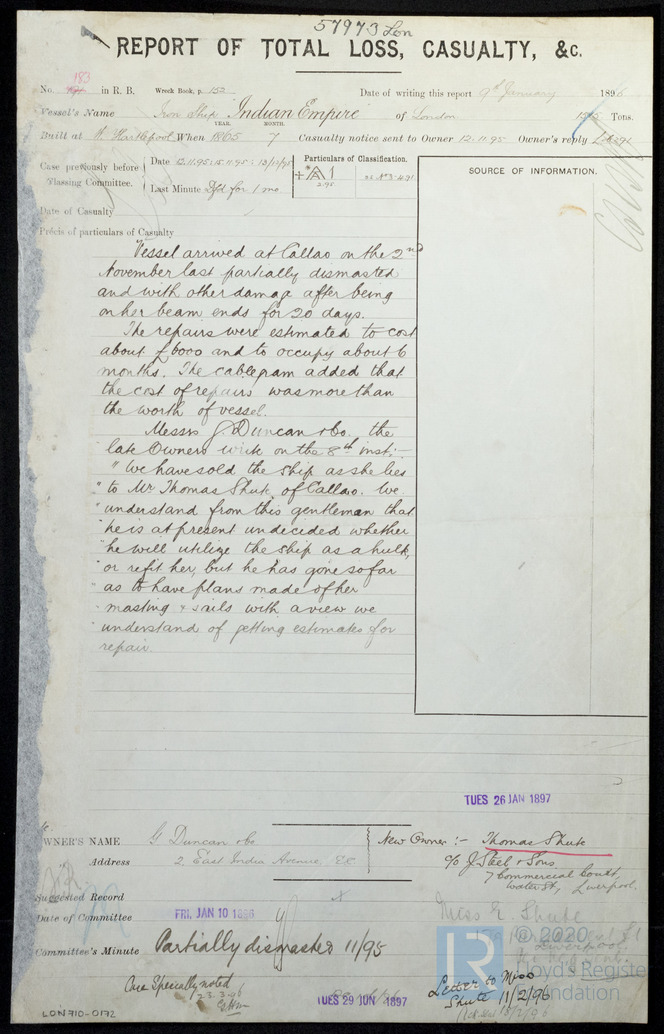 57973 Lon
REPORT OF TOTAL LOSS, CASUALTY, &c.
183
No. in R. B. Wreck Book, p. 152 Date of writing this report 9th January 1896
Vessel's Name Iron Ship Indian Empire of London Tons.
YEAR. MONTH.
Built at W. Hartlepool When 1865 7 Casualty notice sent to Owner 12.11.95 Owner's reply
Case previously before Classing Committee. Date 12.11.95: 15.11.95: 13/12/95
Last Minute Dfd for 1 mo
Particulars of Classification.
A 1
2.95
SOURCE OF INFORMATION.
Date of Casualty
Précis of particulars of Casualty
Vessel arrived at Callao on the 2nd
November last partially dismasted
and with other damage after being
on her beam ends for 20 days.
The repairs were estimated to cost
about £6000 and to occupy about 6
months. The cablegram added that
the cost of repairs was more than
the worth of vessel.
Messrs G Duncan & Co. the
late Owners write on the 8th inst:-
" We have sold the ship as she lies
" to Mr Thomas Shute of Callao. We
" understand from this gentleman that
" he is at present undecided whether
" he will utilize the ship as a hulk,
" or refit her, but he has gone so far
as to have plans made of her
" masting & sails with a view we
" understand of getting estimates for
repair.
TUES 26 JAN 1897
OWNER'S NAME G Duncan & Co
Address 2, East India Avenue, E.C.
New Owner :- Thomas Shute
c/o J. Steel & Sons
7 Commercial Court,
Water St, Liverpool.
Suggested Record
Date of Committee FRI. JAN 10 1896
Miss E. Shute
Liverpool
Committee's Minute Partially dismasted 11/95
Case Specially noted
23.3.96
TUES 29 JUN 1897
Letter to Miss
Shute 11/2/96
LR
© 2020
Lloyd's Register
Foundation
LON710-0172